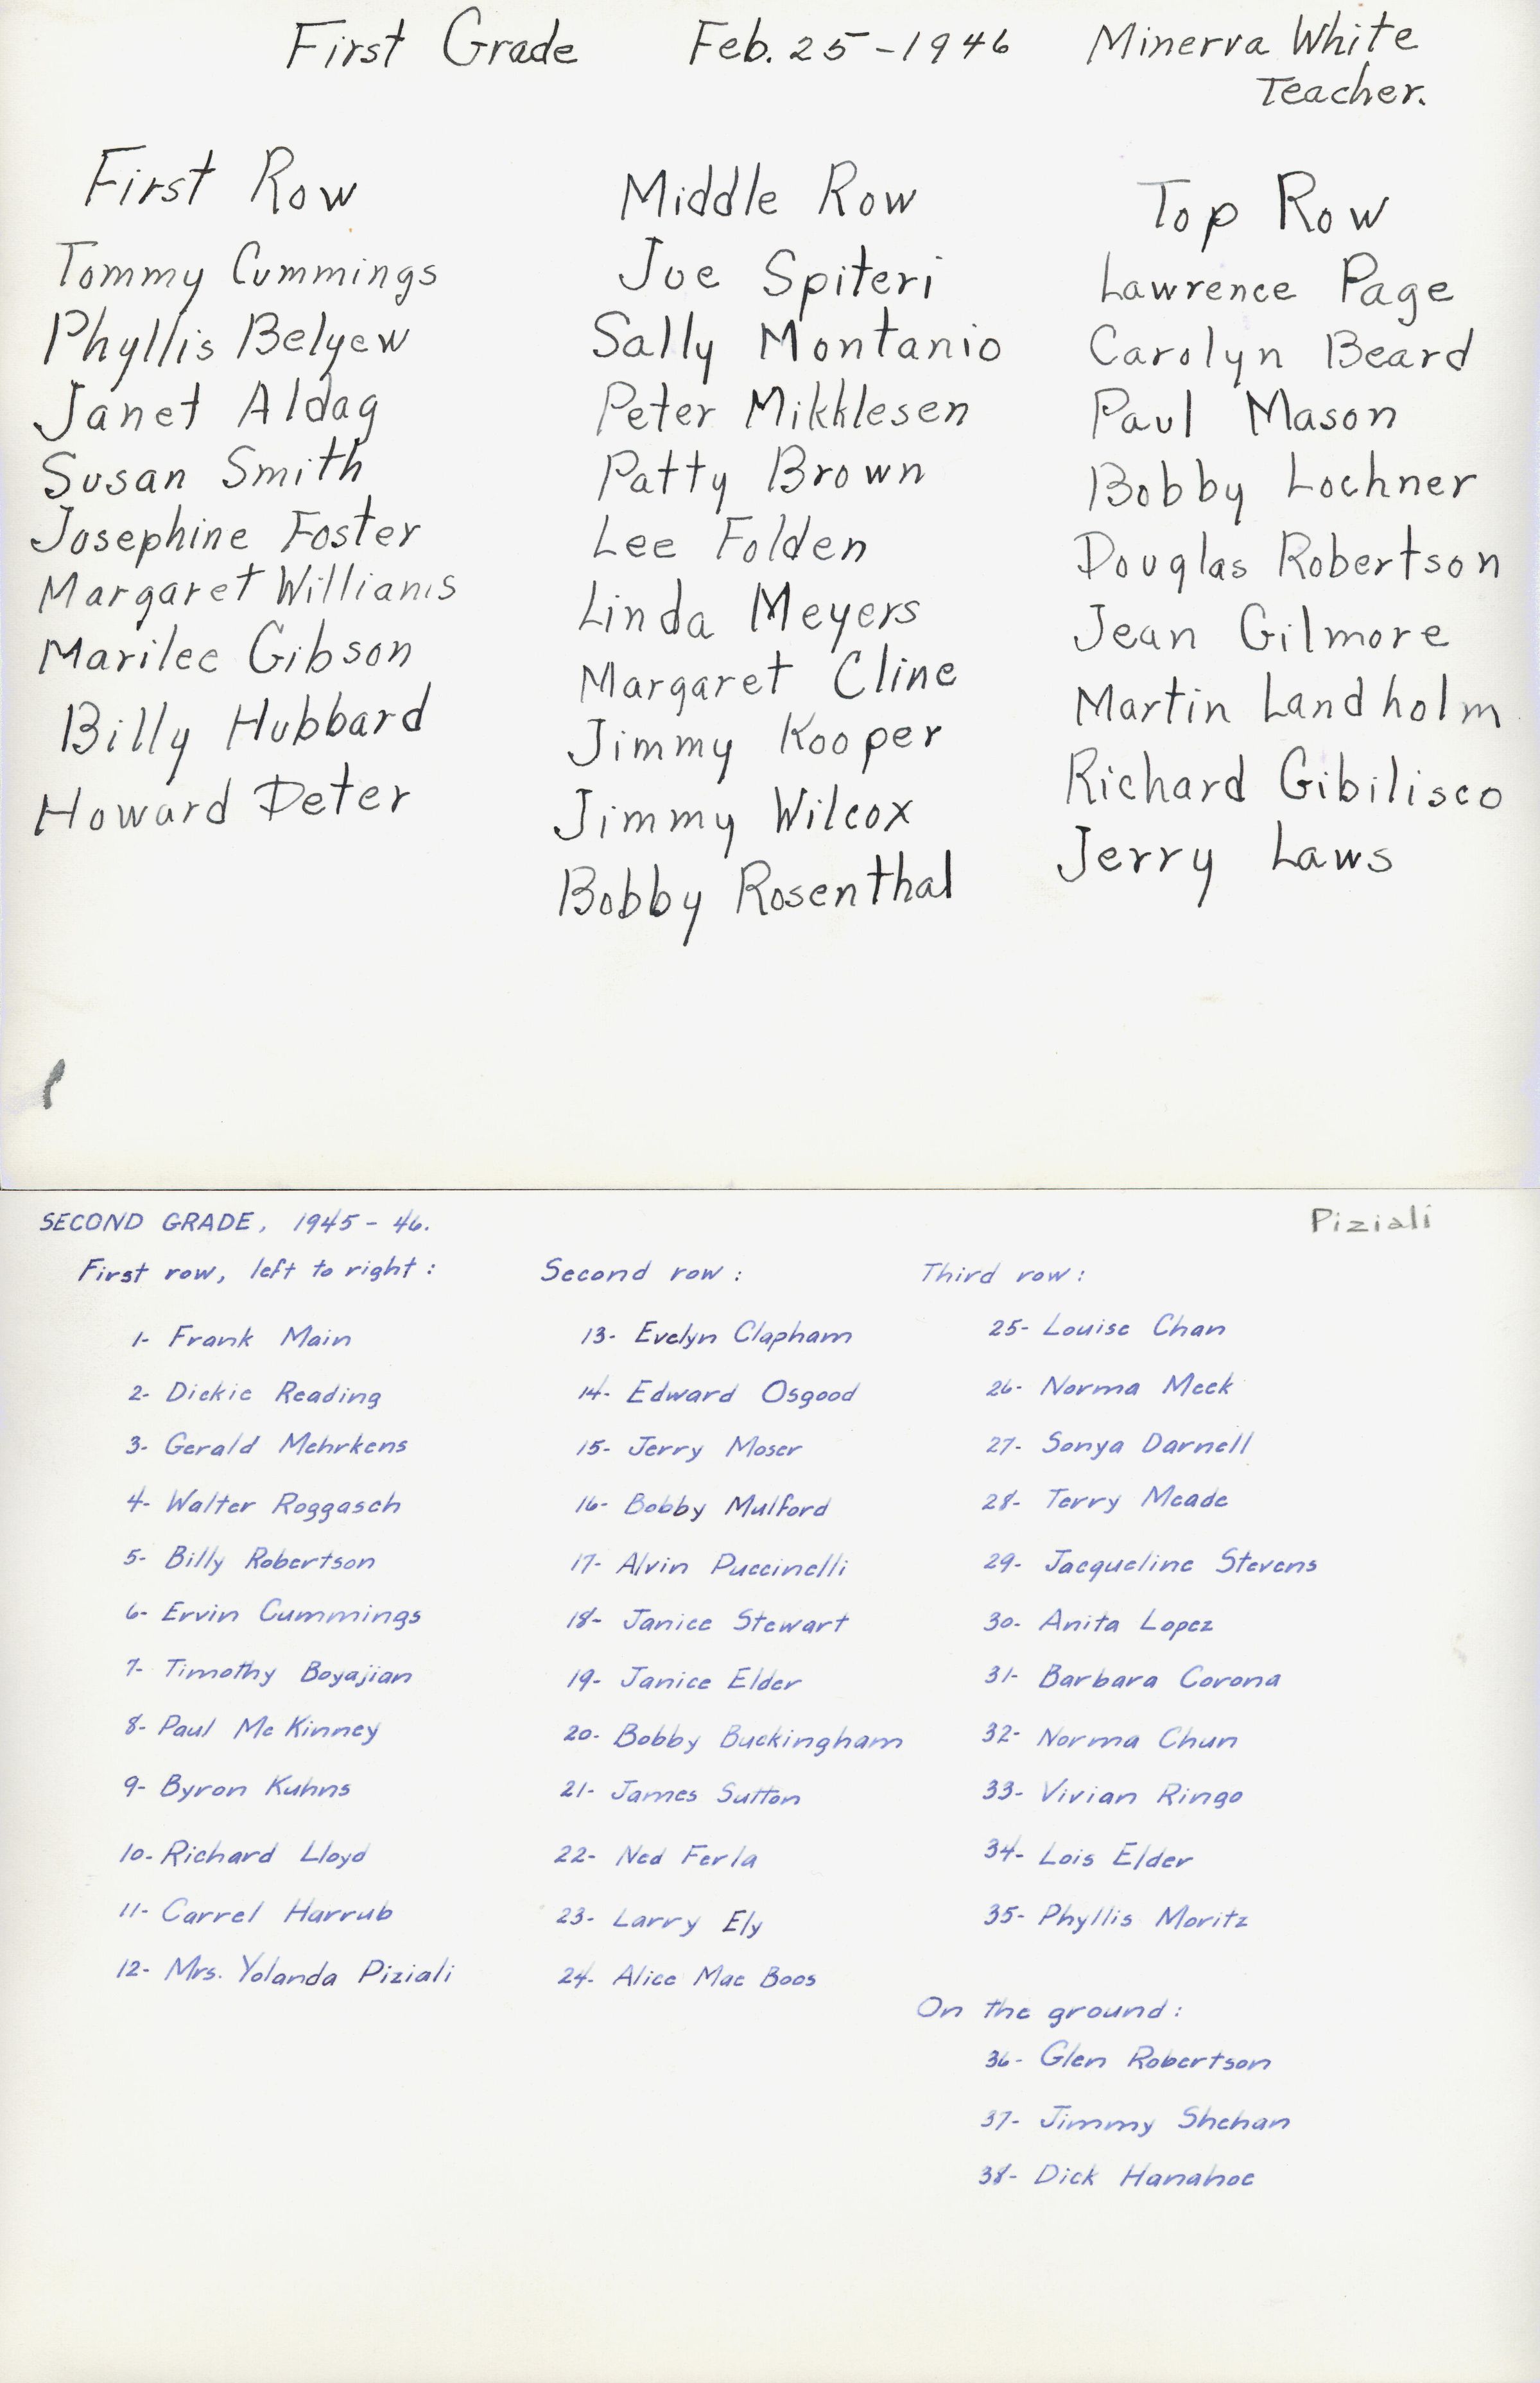 First Grade Feb. 25-1946 Minerva White
Teacher.
First Row
Tommy Cummings
Phyllis Belyew
Janet Aldag
Susan Smith
Josephine Foster
Margaret Williams
Marilee Gibson
Billy Hubbard
Howard Deter
Middle Row
Joe Spiteri
Sally Montanio
Peter Mikklesen
Patty Brown
Lee Folden
Linda Meyers
Margaret Cline
Jimmy Kooper
Jimmy Wilcox
Bobby Rosenthal
Top Row
Lawrence Page
Carolyn Beard
Paul Mason
Bobby Lochner
Douglas Robertson
Jean Gilmore
Martin Landholm
Richard Gibilisco
Jerry Laws
SECOND GRADE, 1945-46.
Piziali
First row, left to right:
1- Frank Main
2- Dickie Reading
3- Gerald Mehrkens
4- Walter Roggasch
5- Billy Robertson
6- Ervin Cummings
7- Timothy Boyajian
8- Paul McKinney
9- Byron Kuhns
10- Richard Lloyd
11- Carrel Harrub
12- Mrs. Yolanda Piziali
Second row:
13- Evelyn Clapham
14- Edward Osgood
15- Jerry Moser
16- Bobby Mulford
17- Alvin Puccinelli
18- Janice Stewart
19- Janice Elder
20- Bobby Buckingham
21- James Sutton
22- Ned Ferla
23- Larry Ely
24- Alice Mae Boos
Third row:
25- Louise Chan
26- Norma Meek
27- Sonya Darnell
28- Terry Meade
29- Jacqueline Stevens
30- Anita Lopez
31- Barbara Corona
32- Norma Chun
33- Vivian Ringo
34- Lois Elder
35- Phyllis Moritz
On the ground:
36- Glen Robertson
37- Jimmy Shehan
38- Dick Hanahoe